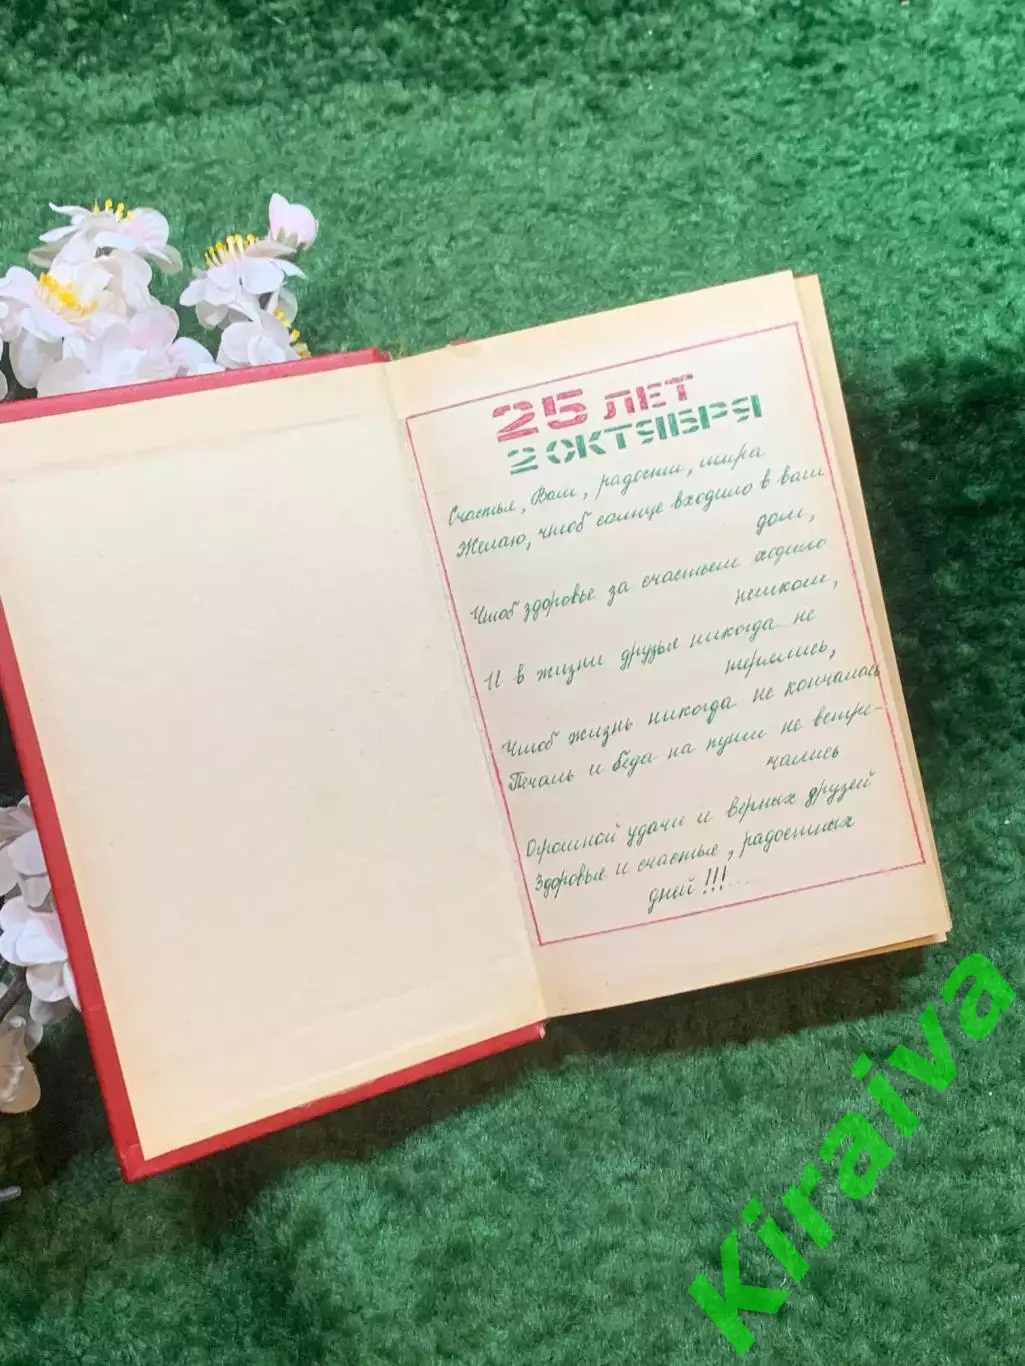 25 ЛЕТ
2 ОКТЯБРЯ
Счастья, Вам, радости, мира
Желаю, чтоб солнце входило в ваш
дом,
Чтоб здоровье за счастьем ходило
пешком,
И в жизни друзья никогда не
терялись,
Чтоб жизнь никогда не кончалась
Печаль и беда на пути не встре-
чались
Огромной удачи и верных друзей
Здоровья и счастья, радостных
дней!!!...
Kiraiva